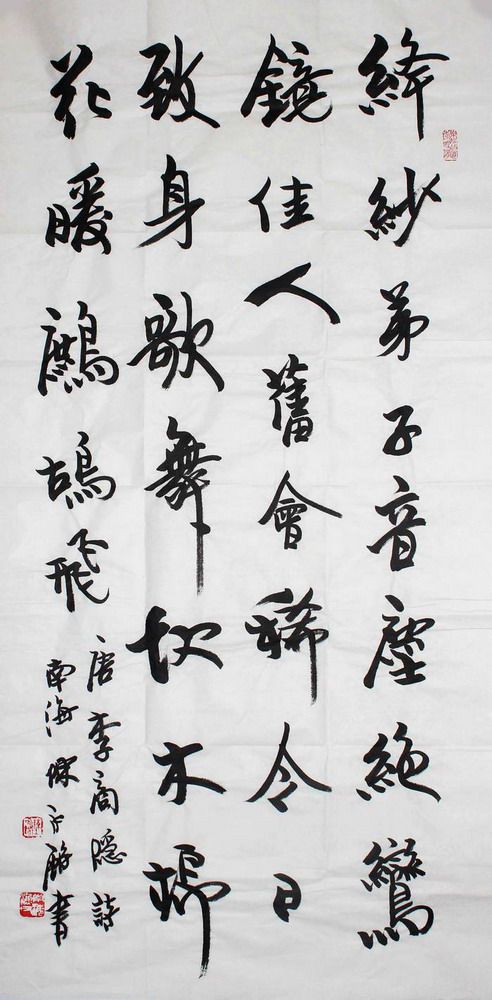 絳紗弟子音塵絕鸞
鏡佳人舊會稀今日
致身歌舞地木棉
花暖鷓鴣飛
唐李商隱詩
南海 書